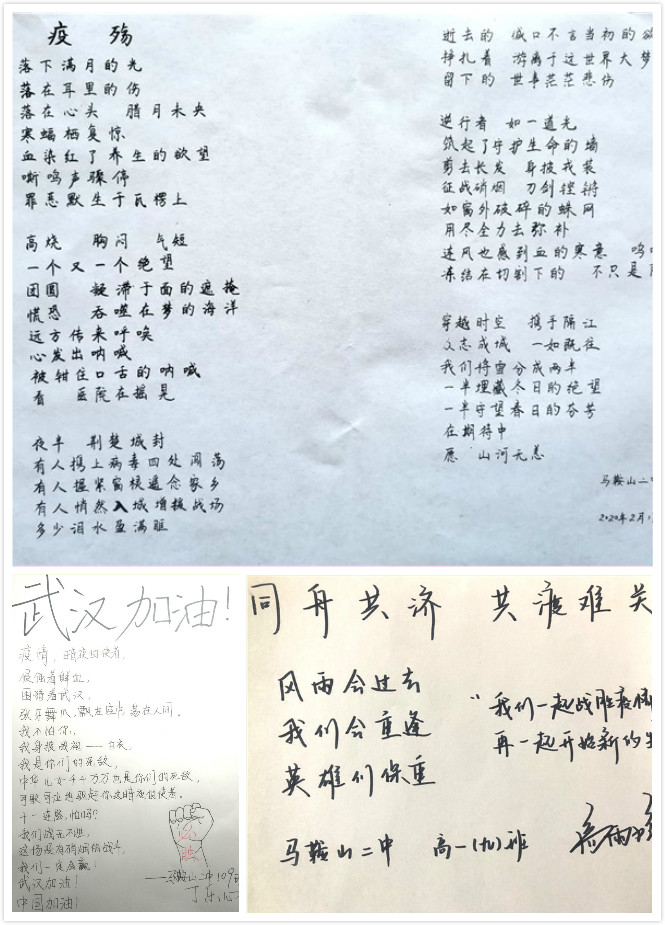 疫 殇
落下满月的光
落在耳里的伤
落在心头 腊月未央
寒蝠栖复惊
血染红了养生的欲望
嘶鸣声骤停
罪恶默生于瓦楞上
高烧 胸闷 气短
一个又一个绝望
团圆 凝滞于面的遮掩
慌恐 吞噬在梦的海洋
远方传来呼唤
心发出呐喊
被钳住口舌的呐喊
看 医院在摇晃
夜半 荆楚城封
有人携上病毒四处闯荡
有人握紧窗棂遥念家乡
有人悄然入城增援战场
多少泪水盈满眶
逝去的 缄口不言当初的
挣扎着 游离于这世界大梦
留下的 世事茫茫悲伤
逆行者 如一道光
筑起了守护生命的墙
剪去长发 身披戎装
征战硝烟 刀剑铿锵
如窗外破碎的蛛网
用尽全力去弥补
连风也感到血的寒意
冻结在切割下的 不只是
穿越时空 携手隔江
众志成城 一如既往
我们将雷分成两半
一半埋藏冬日的绝望
一半守望春日的芬芳
在期待中
愿 山河无恙
马鞍山二
2020年2月
武汉加油!
疫情,暗夜的使者,
侵蚀着鲜血,
围猎着武汉,
张牙舞爪,飘在人间,
我不怕你,
我身披战袍——白衣,
我是你们的死敌,
中华儿女千千万万都是你们的死敌,
十一连胜,怕吗?
我们战无不胜,
这场没有硝烟的战斗,
我们一定会赢!
武汉加油!
中国加油!
必胜
——马鞍山二中109班
同舟共济 共渡难关
风雨会过去
我们会重逢
英雄们保重
"我们一起战胜疫情
再一起开始新的生
马鞍山二中 高一(九)班